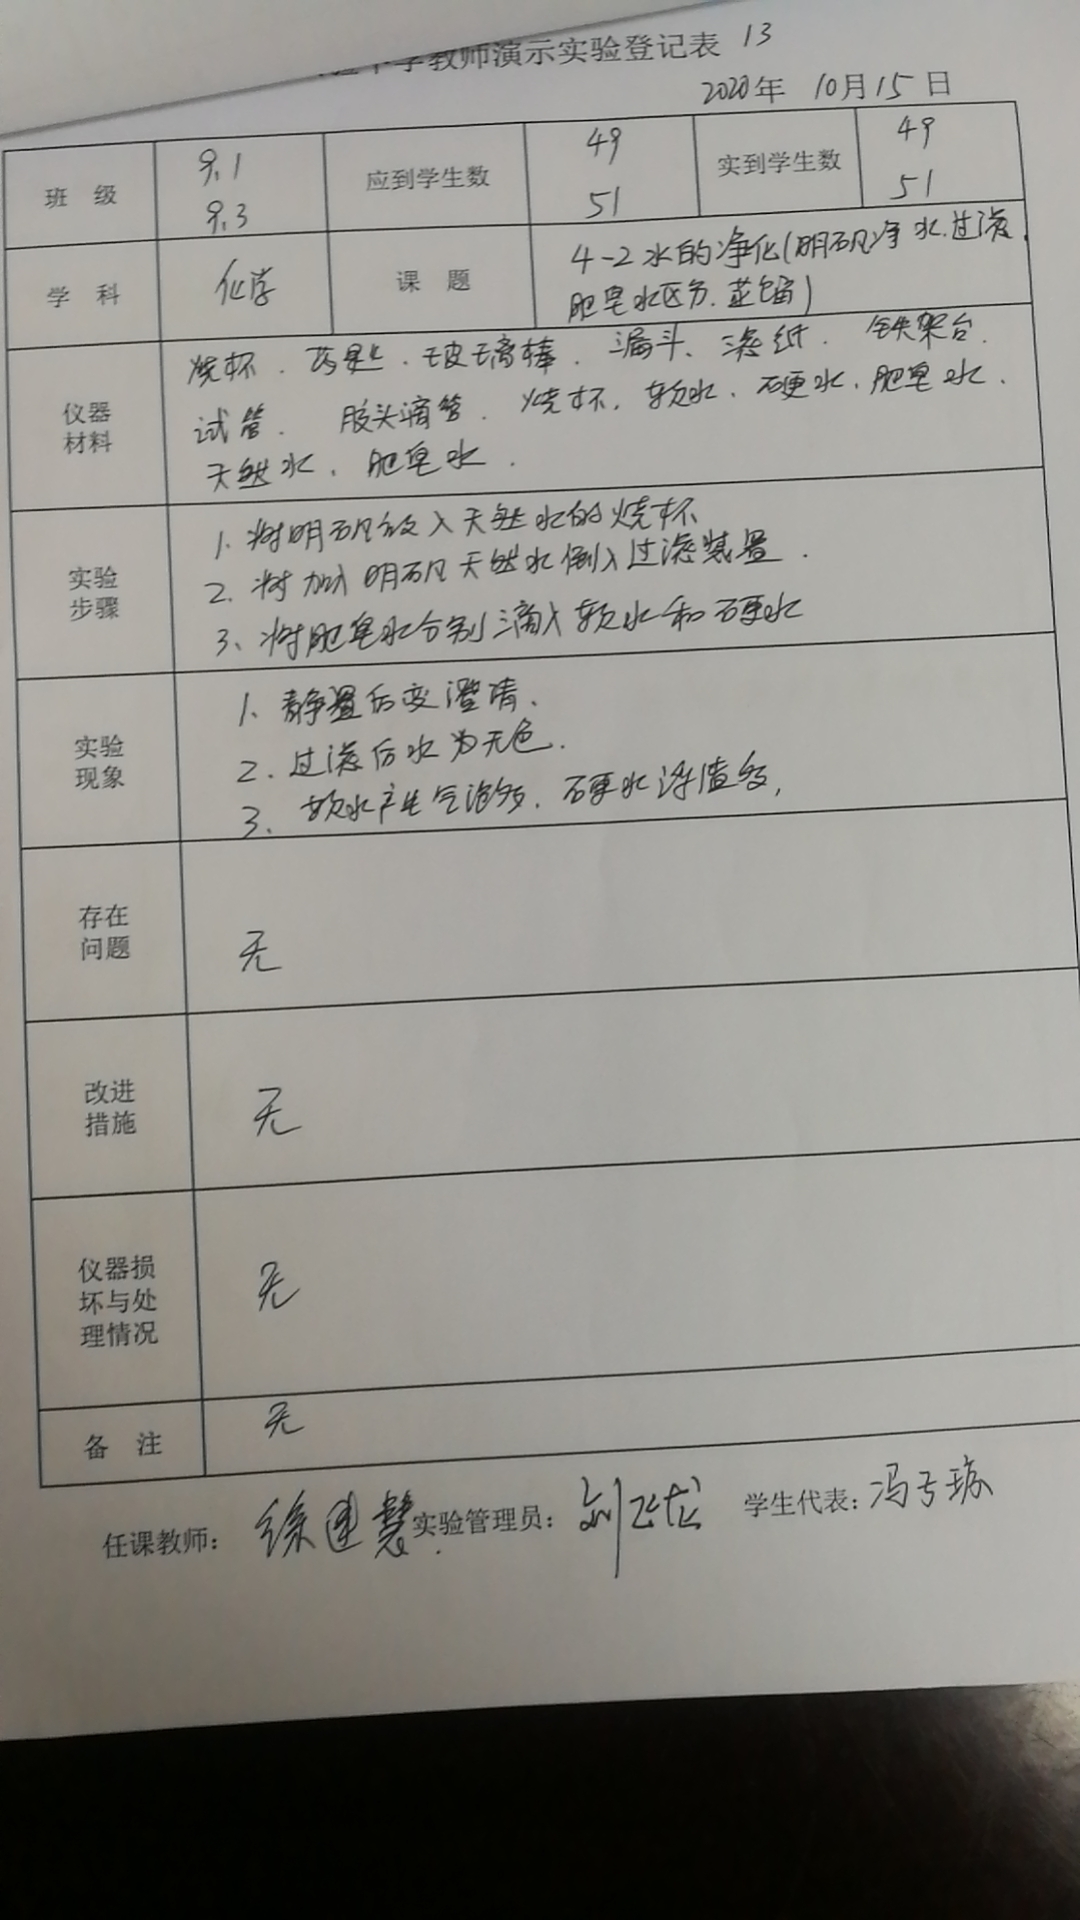 中学教师演示实验登记表 13
2020年 10月15日
班 级 9.1 9.3 应到学生数 49 51 实到学生数 49 51
学 科 化学 课 题 4-2水的净化(明矾净水.过滤.
肥皂水区分.蒸馏)
仪器
材料
烧杯.药匙.玻璃棒.漏斗、滤纸.铁架台.
试管. 胶头滴管. 烧杯.软水.硬水.肥皂水.
天然水.肥皂水.
实验
步骤
1.将明矾放入天然水的烧杯
2.将加入明矾天然水倒入过滤装置.
3、将肥皂水分别滴入软水和硬水
实验
现象
1、静置后变澄清.
2.过滤后水为无色.
3、软水产生气泡多.硬水浮渣多,
存在
问题
无
改进
措施
无
仪器损
坏与处
理情况
无
备 注 无
任课教师: 徐建慧 实验管理员: 刘正龙 学生代表:冯